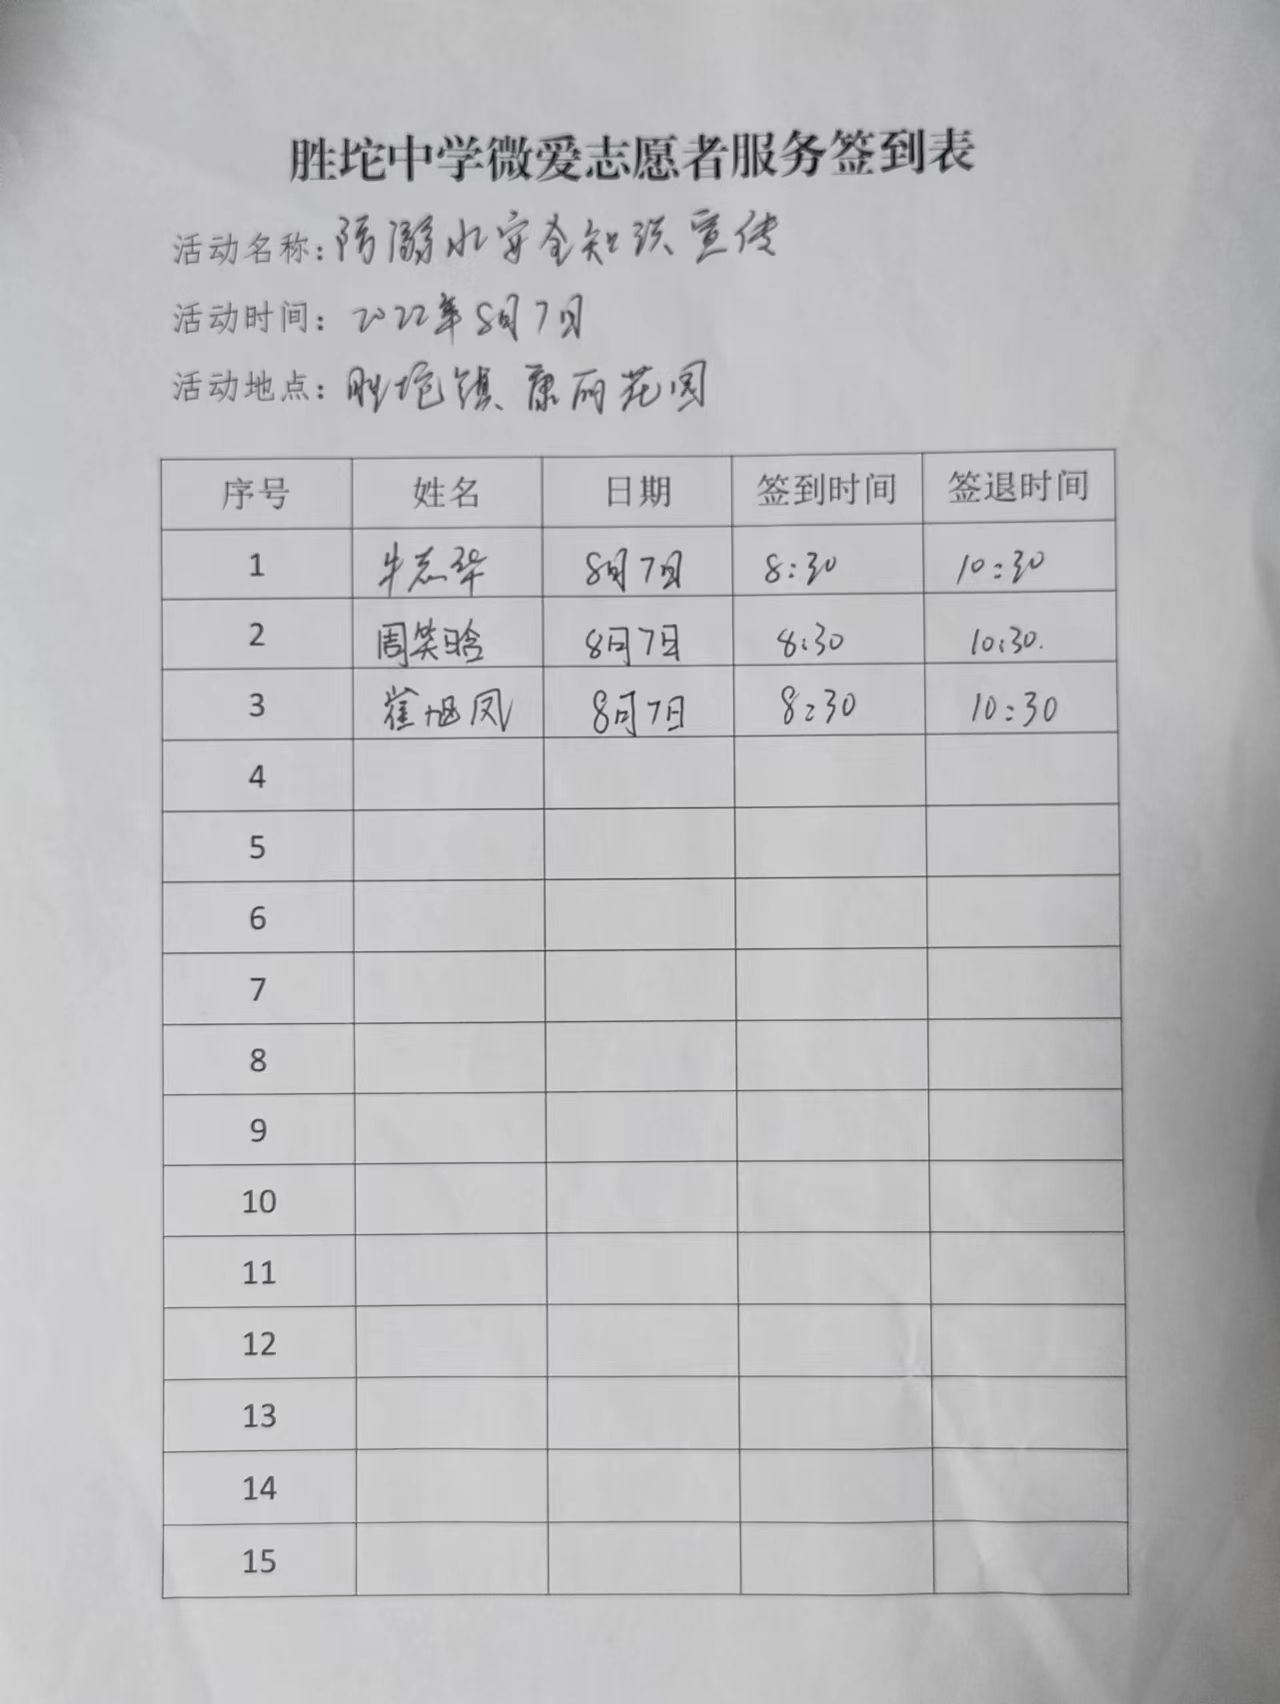 胜坨中学微爱志愿者服务签到表
活动名称：防溺水安全知识宣传
活动时间：2022年8月7日
活动地点：胜坨镇康丽花园
序号 姓名 日期 签到时间 签退时间
1 牛志华 8月7日 8:30 10:30
2 周笑晗 8月7日 8:30 10:30.
3 崔旭凤 8月7日 8:30 10:30
4
5
6
7
8
9
10
11
12
13
14
15